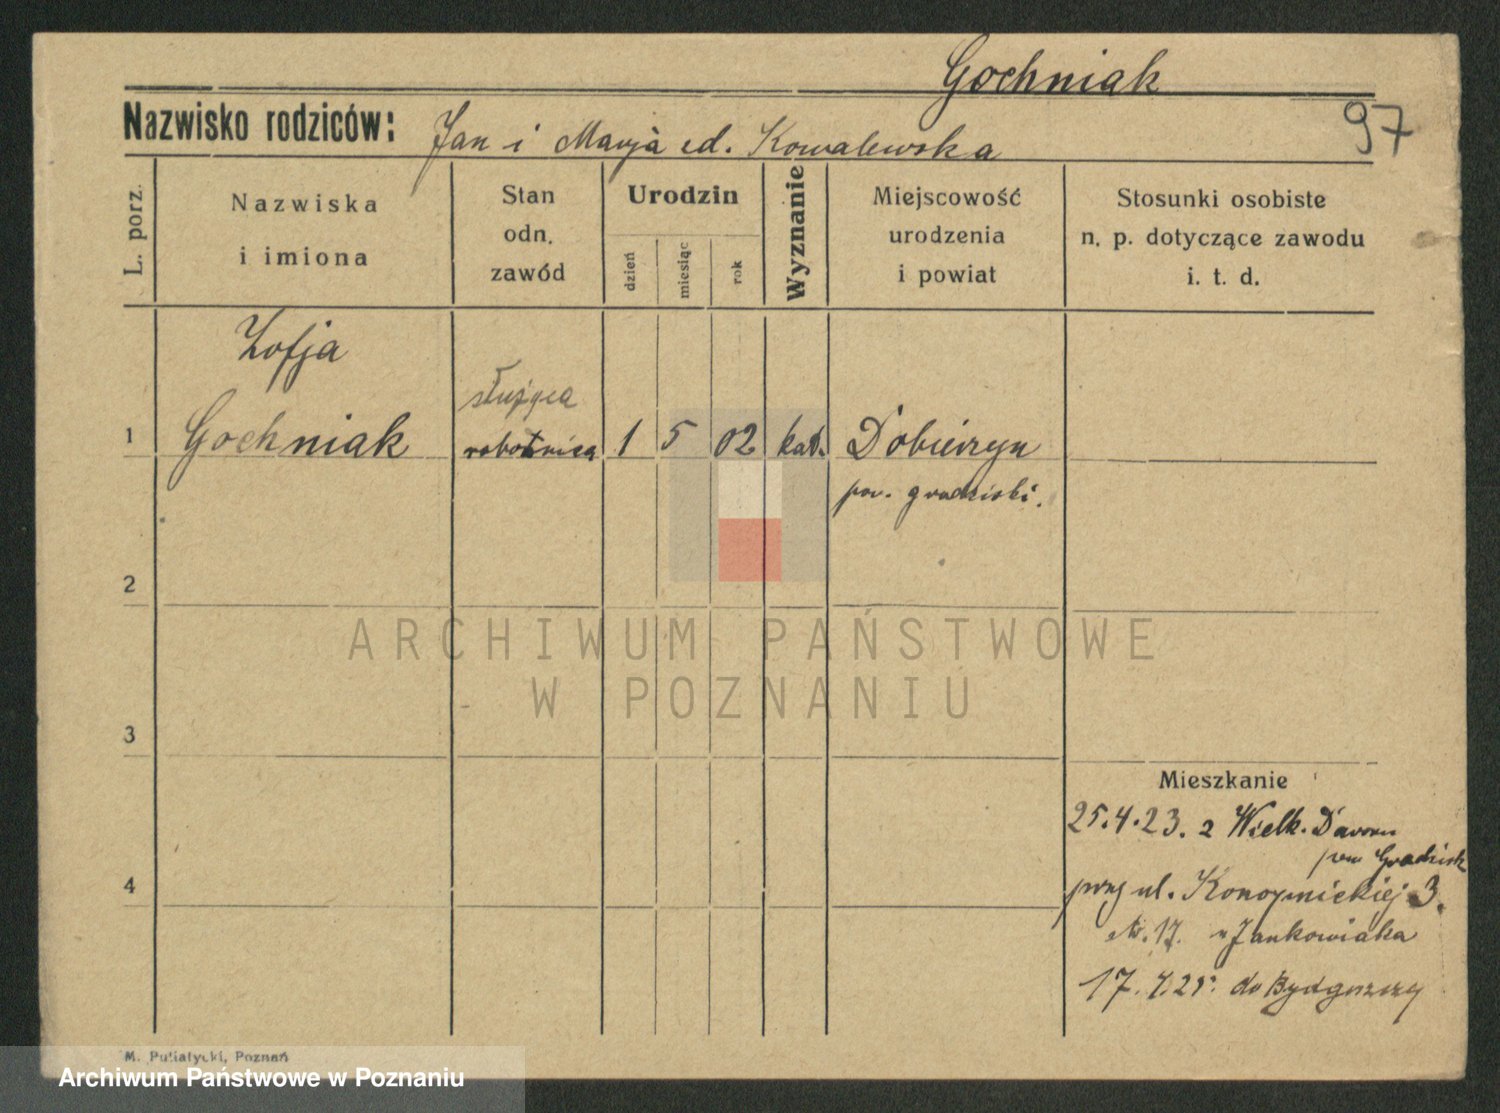 Gochniak
Nazwisko rodziców: Jan i Marja
Kowalewska
97
L. porz.
Nazwiska
i imiona
Stan
odn.
zawód
Urodzin
dzień
miesiąc
rok
Wyznanie
Miejscowość
urodzenia
i powiat
Stosunki osobiste
n. p. dotyczące zawodu
i. t. d.
Zofja
służąca
1 Gochniak robotnica 1 5 02 kat. Dobieżyn
pow. grodziski.
2
ARCHIWUM PAŃSTWOWE
W POZNANIU
3
Mieszkanie
25.4.23. z Wielk.
pow Grodzisk
4
przy ul. Konopnickiej 3.
17. u Jankowiaka
17. do Bydgoszczy
M. Putiatycki, Poznań
Archiwum Państwowe w Poznaniu